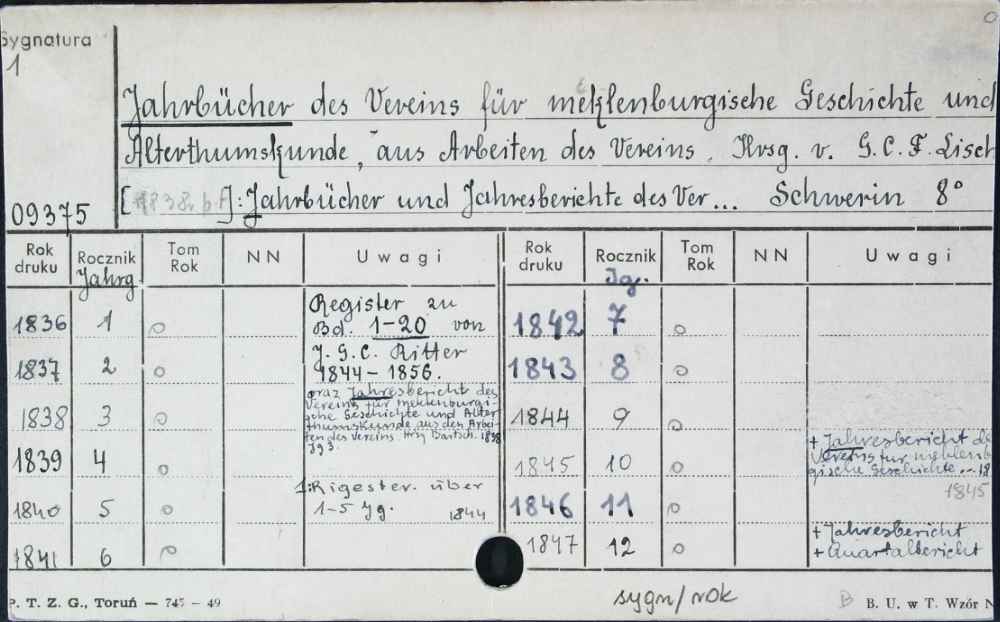 Sygnatura
1
Jahrbücher des Vereins für meklenburgische Geschichte und
Alterthumskunde, aus Arbeiten des Vereins. Hrsg. v. G.C.F. Lisch
]: Jahrbücher und Jahresberichte des Ver... Schwerin 8°
09375
Rok druku Rocznik Tom Rok NN Uwagi Rok druku Rocznik Tom Rok NN Uwagi
Jahrg. Jg.
1836 1 o Register zu Bd. 1-20 von 1842 7 o
1837 2 o J. G. C. Ritter 1844-1856. 1843 8 o
1838 3 o 1844 9 o
oraz Jahresbericht des
Vereins für meklenburgi-
sche Geschichte und Alter
thumskunde aus den Arbei-
ten des Vereins Hrsg Bartsch. 1838
Jg 3.
1839 4 o 1845 10 o
+ Jahresbericht
Vereins für meklenb
gische Geschichte
1845
1840 5 o 1: Rigester. über 1-5 Jg. 1844 1846 11 o
1841 6 o 1847 12 o
+ Jahresbericht
+ Quartalbericht
P. T. Z. G., Toruń — 745 - 49
sygn/rok
B B. U. w T. Wzór N